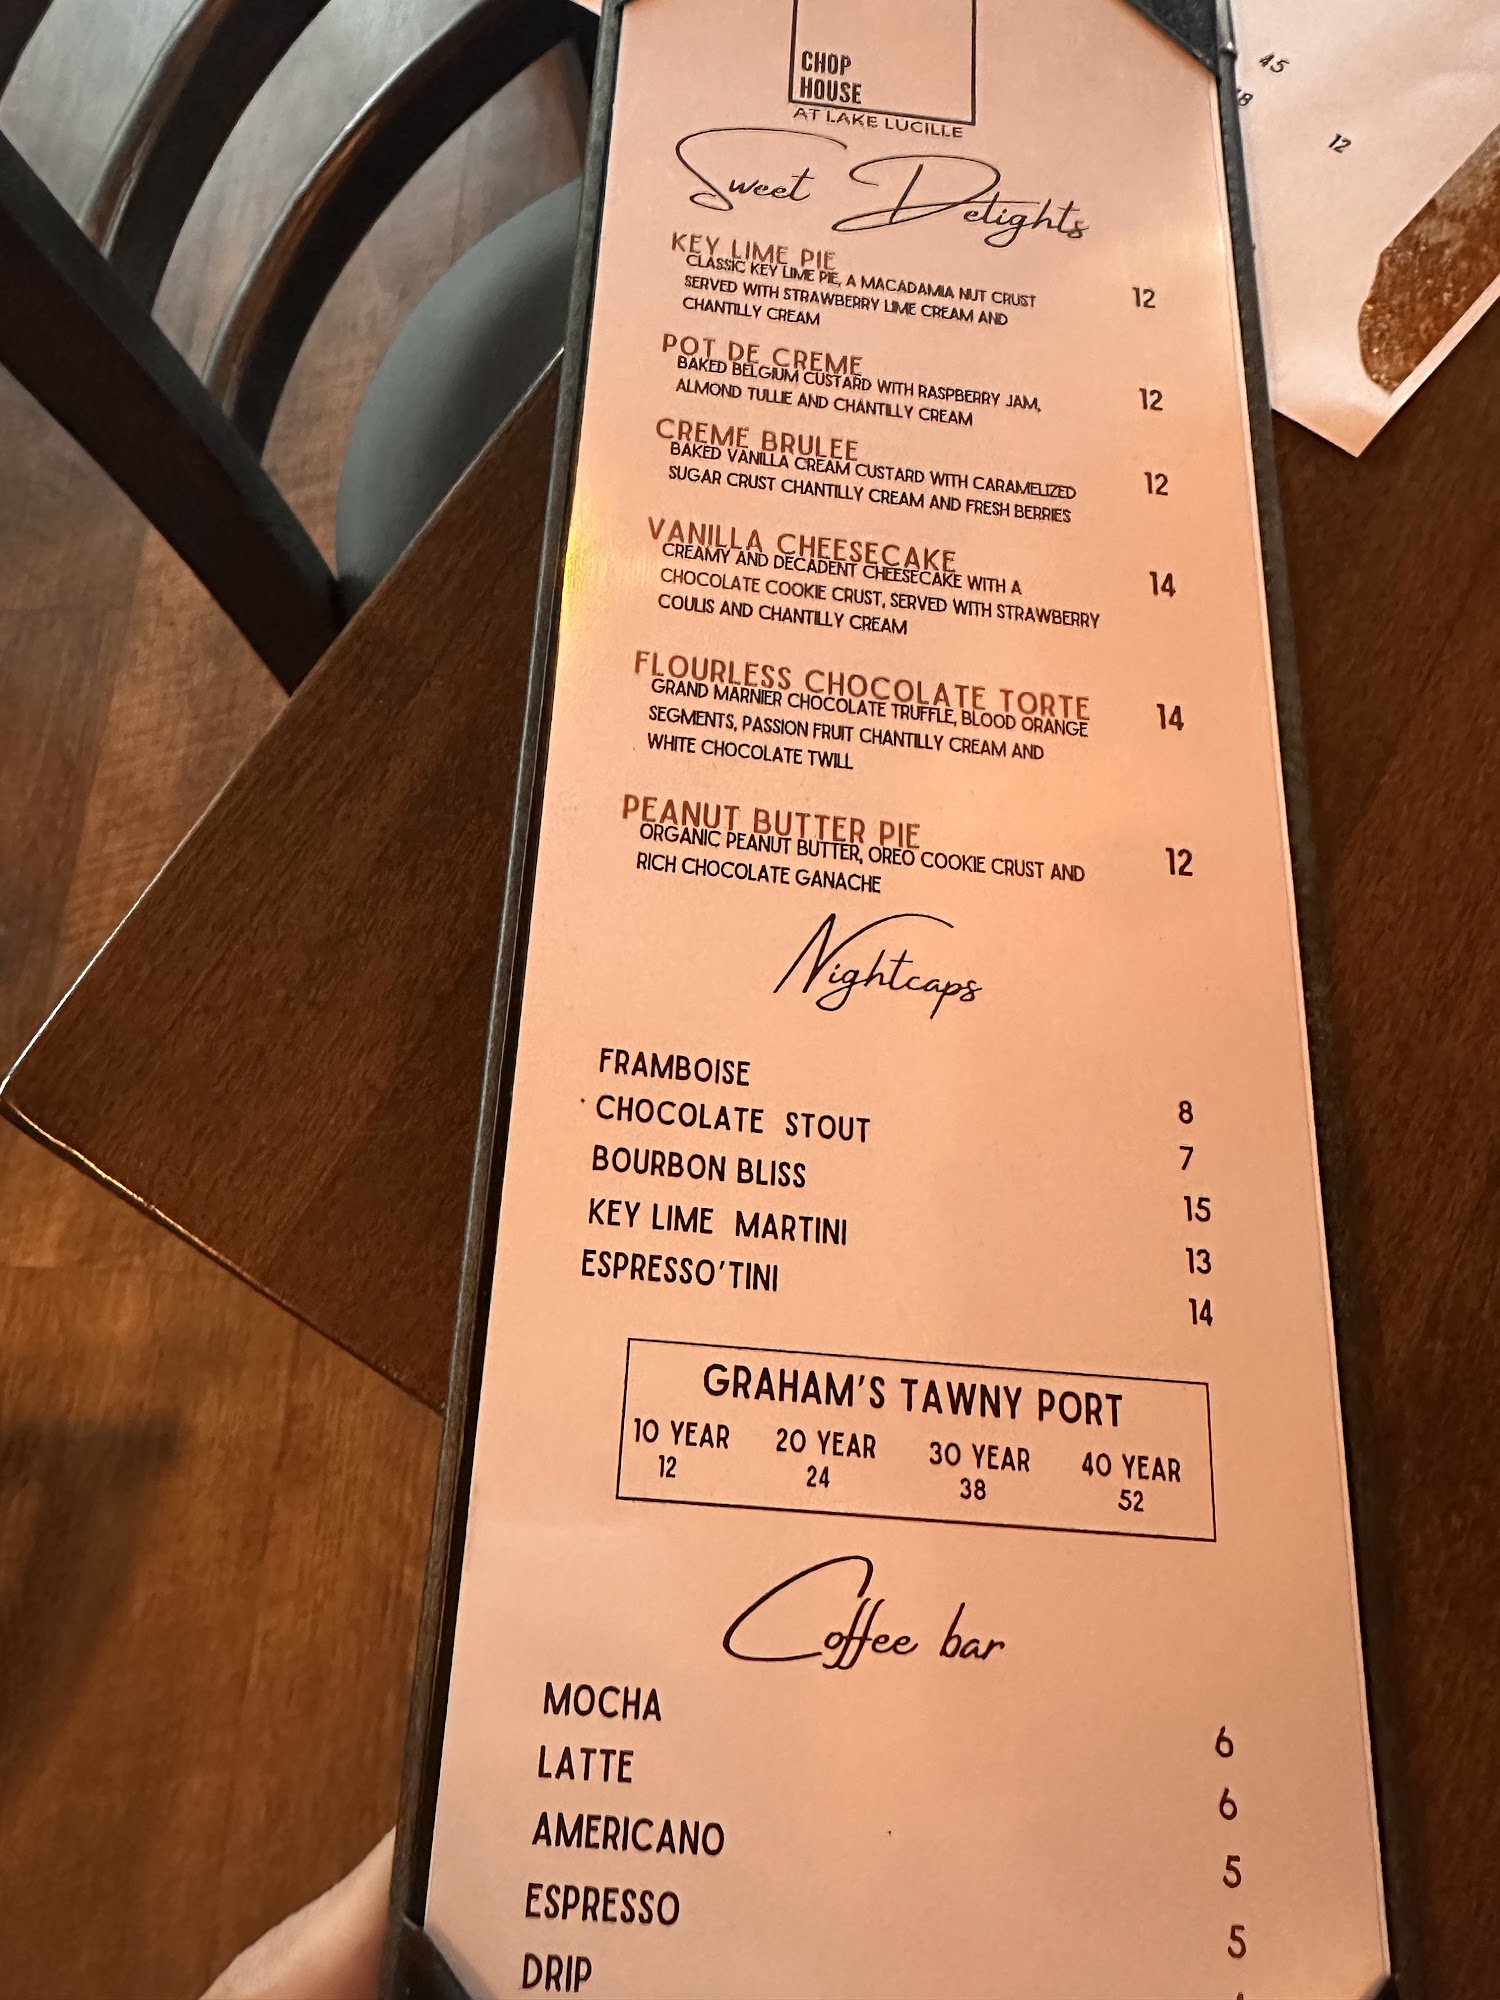 CHOP
HOUSE
AT LAKE LUCILLE
Sweet Delights
KEY LIME PIE
CLASSIC KEY LIME PIE, A MACADAMIA NUT CRUST 12
SERVED WITH STRAWBERRY LIME CREAM AND
CHANTILLY CREAM
POT DE CREME
BAKED BELGIUM CUSTARD WITH RASPBERRY JAM, 12
ALMOND TULLIE AND CHANTILLY CREAM
CREME BRULEE
BAKED VANILLA CREAM CUSTARD WITH CARAMELIZED 12
SUGAR CRUST CHANTILLY CREAM AND FRESH BERRIES
VANILLA CHEESECAKE
CREAMY AND DECADENT CHEESECAKE WITH A 14
CHOCOLATE COOKIE CRUST, SERVED WITH STRAWBERRY
COULIS AND CHANTILLY CREAM
FLOURLESS CHOCOLATE TORTE
GRAND MARNIER CHOCOLATE TRUFFLE, BLOOD ORANGE 14
SEGMENTS, PASSION FRUIT CHANTILLY CREAM AND
WHITE CHOCOLATE TWILL
PEANUT BUTTER PIE
ORGANIC PEANUT BUTTER, OREO COOKIE CRUST AND 12
RICH CHOCOLATE GANACHE
Nightcaps
FRAMBOISE 8
CHOCOLATE STOUT 7
BOURBON BLISS 15
KEY LIME MARTINI 13
ESPRESSO'TINI 14
GRAHAM'S TAWNY PORT
10 YEAR 20 YEAR 30 YEAR 40 YEAR
12 24 38 52
Coffee bar
MOCHA 6
LATTE 6
AMERICANO 5
ESPRESSO 5
DRIP
45
12